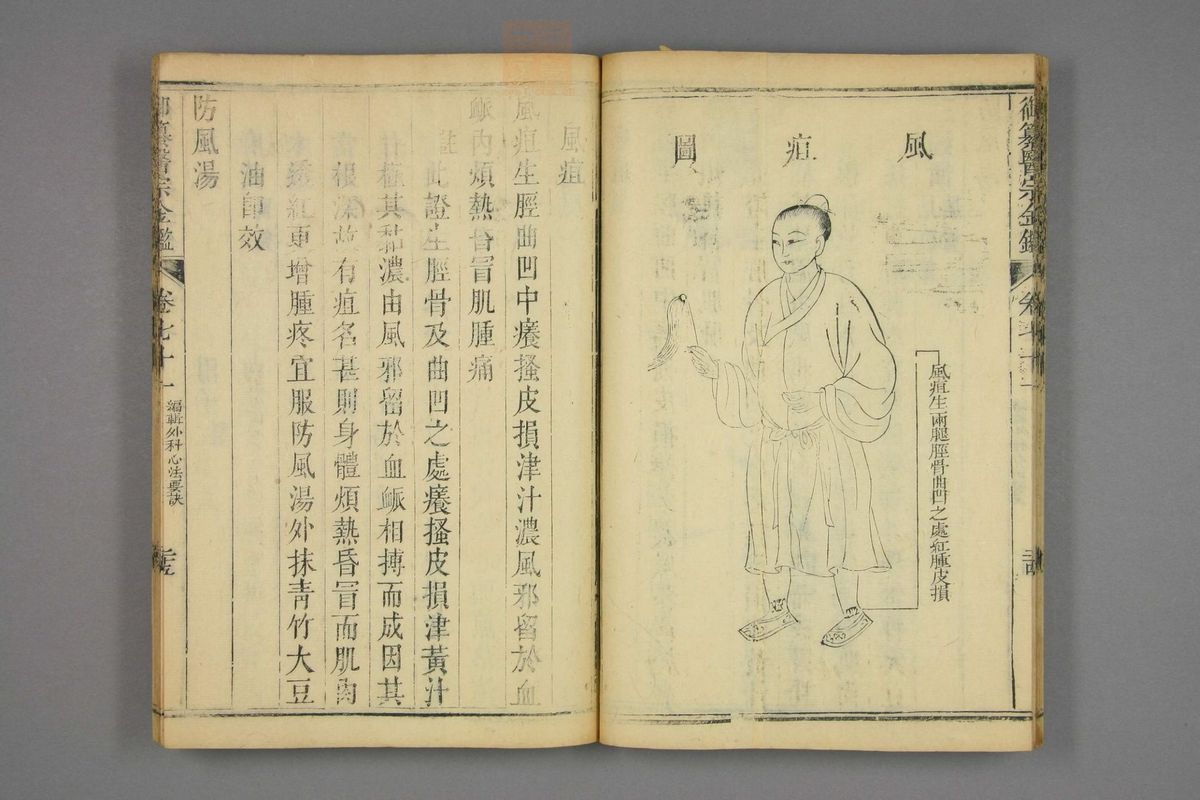 御纂醫宗金鑑
卷七十一
風疽圖
風疽生兩腿脛骨曲凹之處紅腫皮損
風疽
風疽生脛曲凹中癢搔皮損津汁濃風邪留於血
脈內煩熱昏冒肌腫痛
註此證生脛骨及曲凹之處癢搔皮損津黃汁
其黏濃由風邪留於血脈相搏而成因其
根深故有疽名甚則身體煩熱昏冒而肌肉
透紅更增腫疼宜服防風湯外抹青竹大豆
油即效
防風湯
御纂醫宗金鑑
卷七十一
編輯外科心法要訣